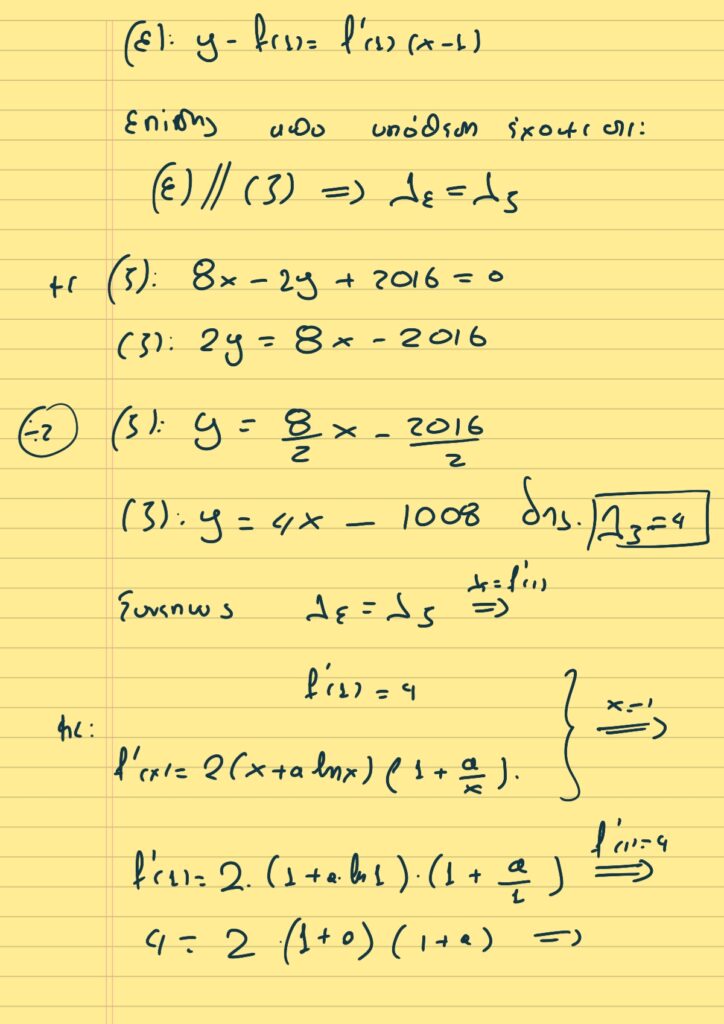 (ε): y - f(1) = f'(1) (x-1)
Επίσης από υπόθεση έχουμε ότι:
(ε) // (ζ) => λε = λζ
με (ζ): 8x - 2y + 2016 = 0
(ζ): 2y = 8x - 2016
÷2 (ζ): y = 8/2 x - 2016/2
(ζ): y = 4x - 1008 δηλ. λζ = 4
Συνεπώς λε = λζ λε=f'(1) =>
f'(1) = 4
με: x=1 =>
f'(x) = 2(x+a lnx) (1 + a/x).
f'(1) = 2. (1+a. ln1).(1 + a/1) f'(1)=4 =>
4 = 2 (1+0) (1+a) =>